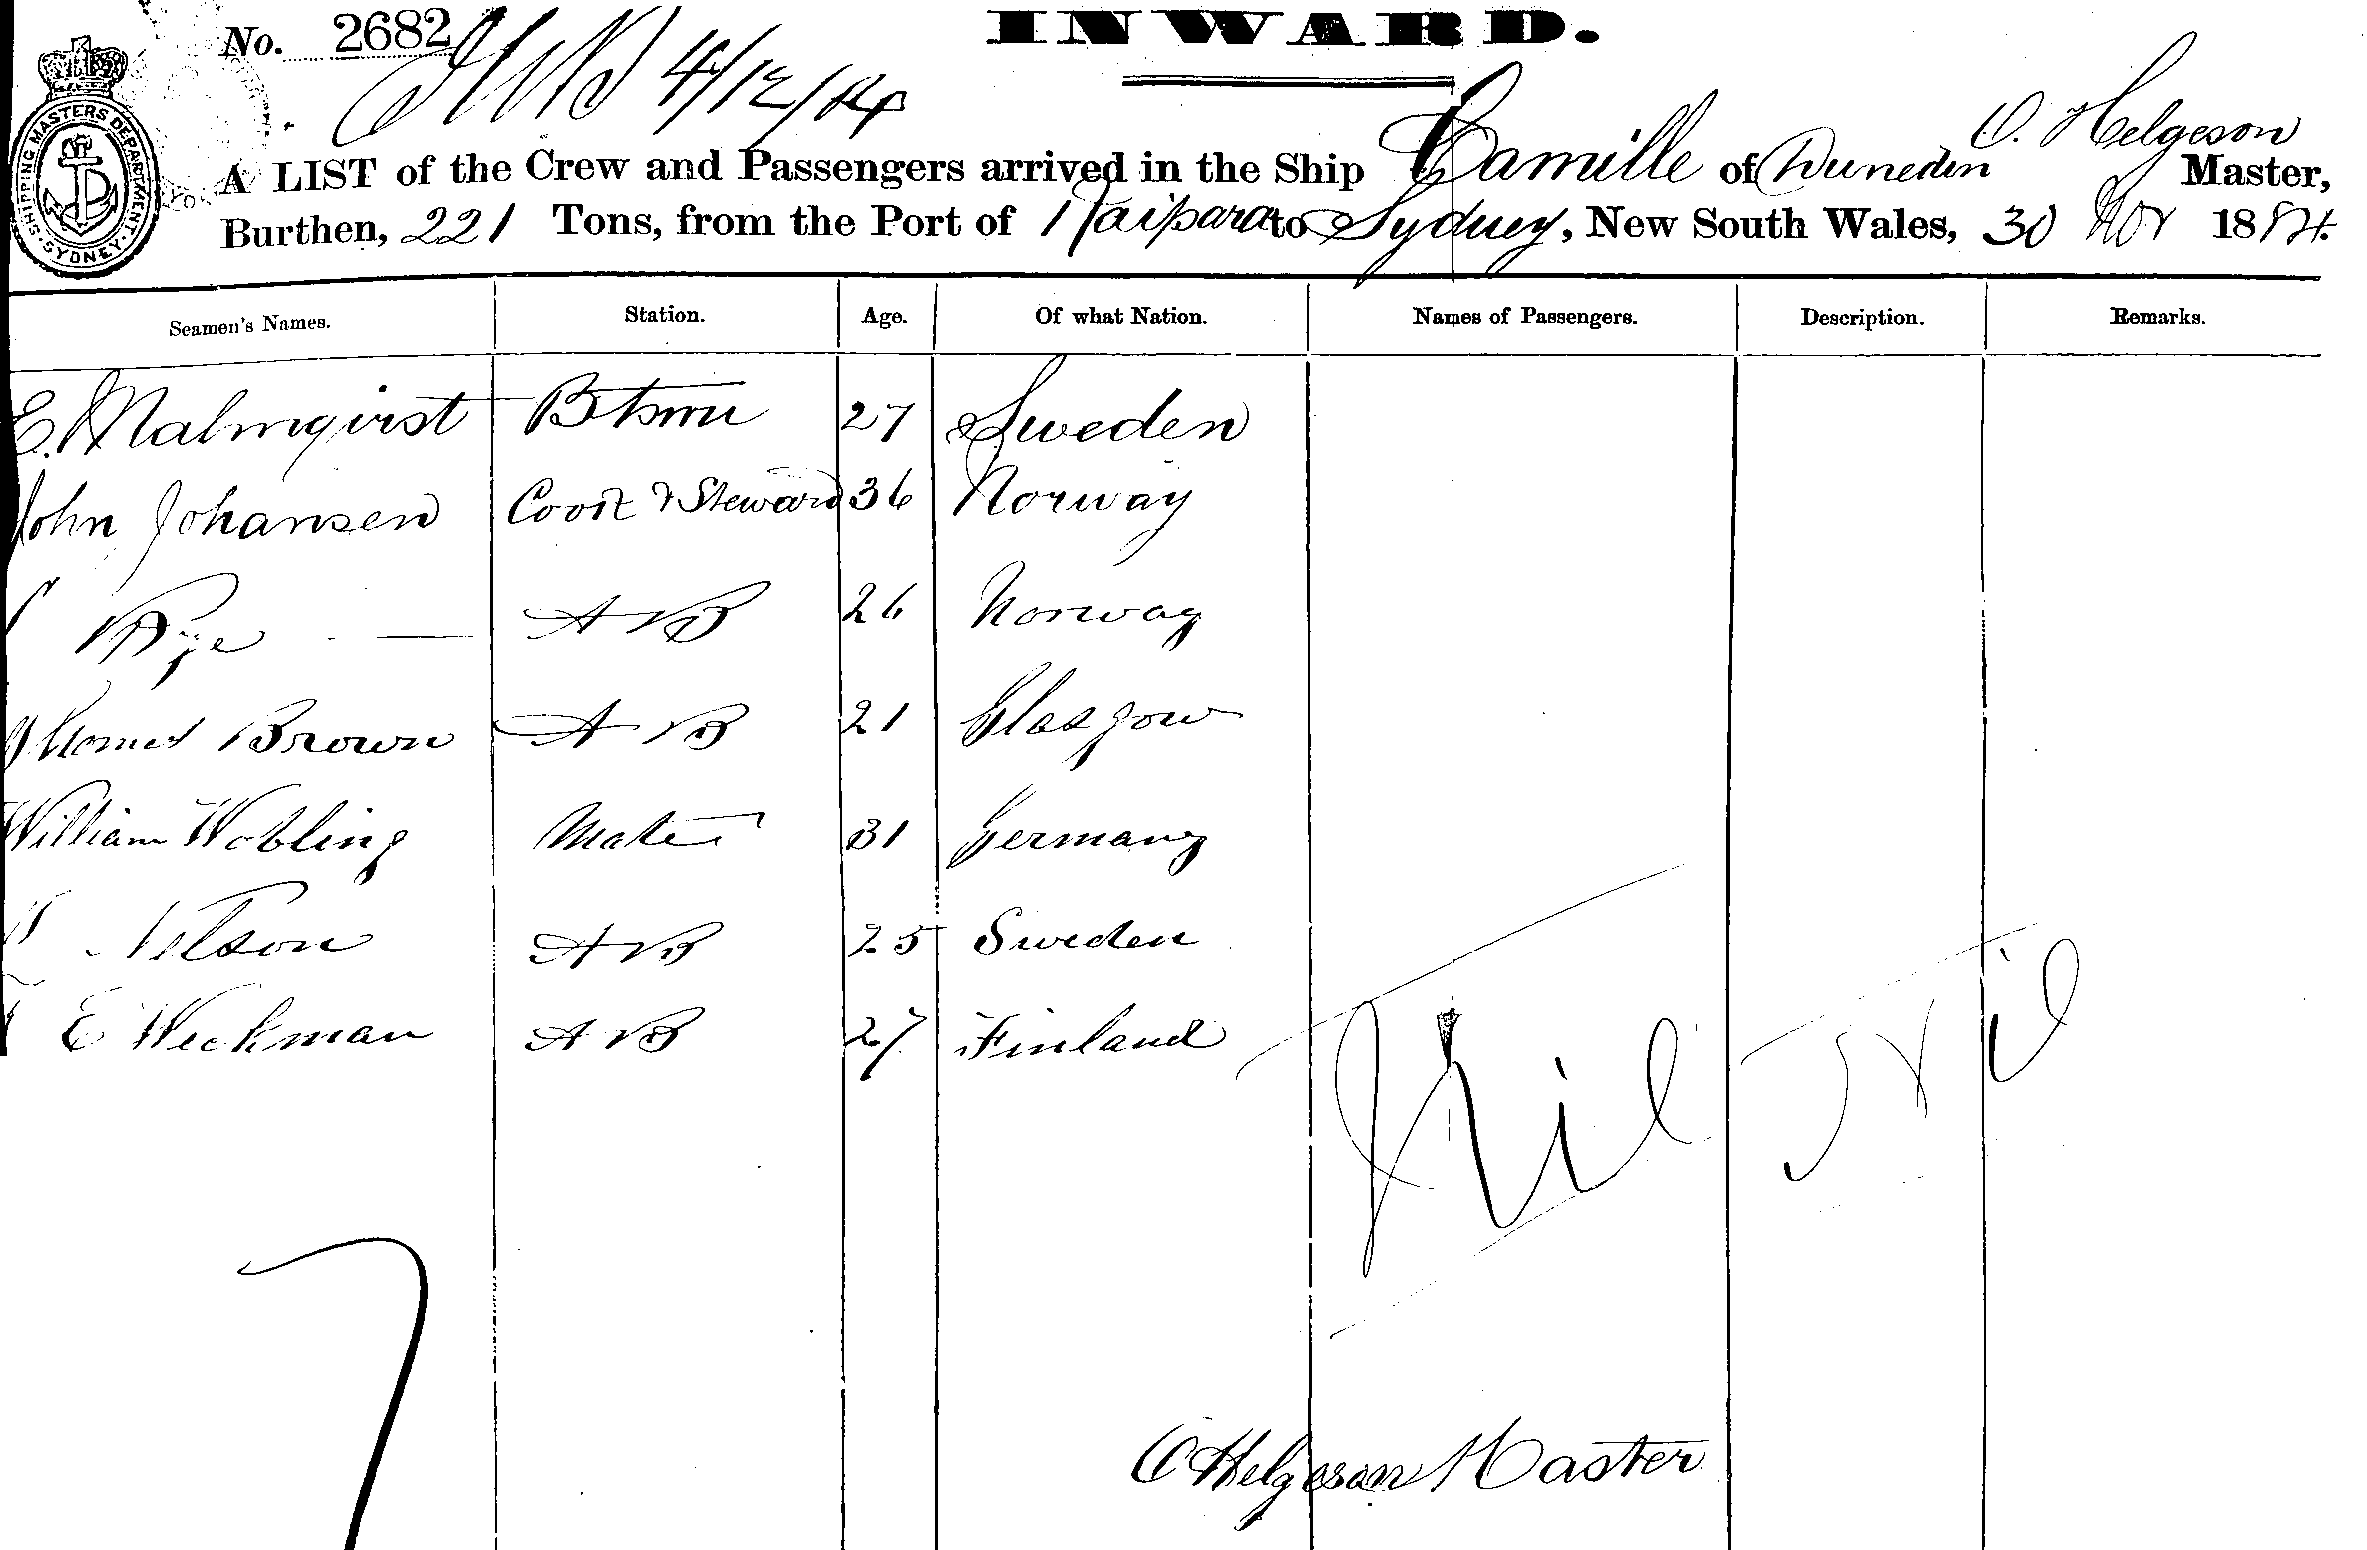 No. 2682
INWARD.
4/12/84
SHIPPING MASTERS DEPARTMENT. SYDNEY.
O. Helgeson
A LIST of the Crew and Passengers arrived in the Ship Camille of Dunedin Master,
Burthen, 221 Tons, from the Port of Kaipara to Sydney, New South Wales, 30 Nov 1884.
Seamen's Names. Station. Age. Of what Nation. Names of Passengers. Description. Remarks.
E. Malmqvist Btswn 27 Sweden
John Johansen Cook & Steward 36 Norway
Rye A B 26 Norway
Thomas Brown A B 21 Glasgow
William Wobling Mate 31 Germany
Nilson A B 25 Sweden
E Weckman A B 27 Finland
Nil Nil
7
O Helgeson Master